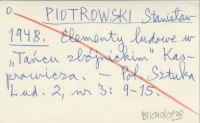 D
PIOTROWSKI Stanisław
1948. Elementy ludowe w
"Tańcu zbójnickim" Kas-
prowicza. — Pol. Sztuka
Lud. 2, nr 3: 9-15.